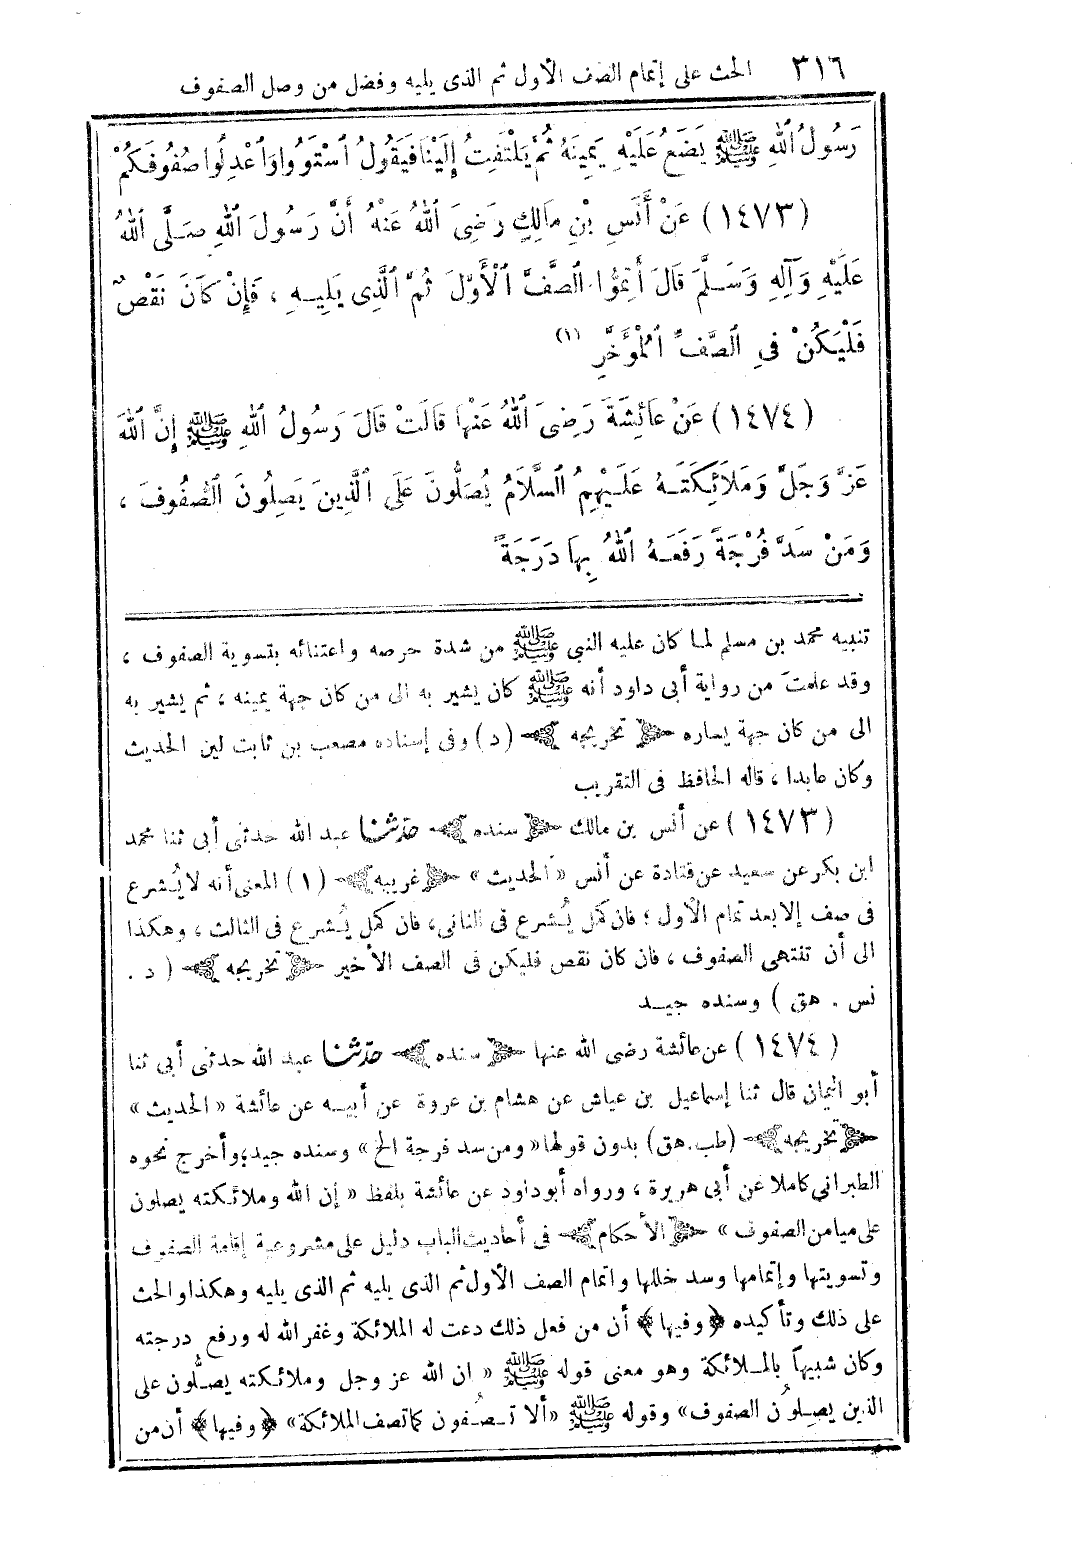 ٣١٦ الحث على إتمام الصف الأول ثم الذى يليه وفضل من وصل الصفوف
رَسُولُ ٱللهِ ﷺ يَضَعُ عَلَيْهِ يَمِينَهُ ثُمَّ يَلْتَفِتُ إِلَيْنَا فَيَقُولُ ٱسْتَوُوا وَٱعْدِلُوا صُفُوفَكُمْ
(١٤٧٣) عَنْ أَنَسِ بْنِ مَالِكٍ رَضِىَ ٱللهُ عَنْهُ أَنَّ رَسُولَ ٱللهِ صَلَّى ٱللهُ
عَلَيْهِ وَآلِهِ وَسَلَّمَ قَالَ أَتِمُّوا ٱلصَّفَّ ٱلْأَوَّلَ ثُمَّ ٱلَّذِى يَلِيهِ ، فَإِنْ كَانَ نَقْصٌ
فَلْيَكُنْ فِى ٱلصَّفِّ ٱلْمُؤَخَّرِ (١)
(١٤٧٤) عَنْ عَائِشَةَ رَضِىَ ٱللهُ عَنْهَا قَالَتْ قَالَ رَسُولُ ٱللهِ ﷺ إِنَّ ٱللهَ
عَزَّ وَجَلَّ وَمَلَائِكَتَهُ عَلَيْهِمُ ٱلسَّلَامُ يُصَلُّونَ عَلَى ٱلَّذِينَ يَصِلُونَ ٱلصُّفُوفَ ،
وَمَنْ سَدَّ فُرْجَةً رَفَعَهُ ٱللهُ بِهَا دَرَجَةً
تنبيه محمد بن مسلم لما كان عليه النبي ﷺ من شدة حرصه واعتنائه بتسوية الصفوف ،
وقد علمتَ من رواية أبى داود أنه ﷺ كان يشير به الى من كان جهة يمينه ، ثم يشير به
الى من كان جهة يساره ﴿ تخريجه ﴾ (د) وفى إسناده مصعب بن ثابت لين الحديث
وكان عابدا ، قاله الحافظ فى التقريب
(١٤٧٣) عن أنس بن مالك ﴿ سنده ﴾ حدّثنا عبد الله حدثنى أبى ثنا محمد
ابن بكر عن سعيد عن قتادة عن أنس « الحديث » ﴿ غريبه ﴾ (١) المعنى أنه لا يُشرع
فى صف إلا بعد تمام الأول ؛ فان كمل يُشرع فى الثانى ، فان كمل يُشرع فى الثالث ، وهكذا
الى أن تنتهى الصفوف ، فان كان نقص فليكن فى الصف الأخير ﴿ تخريجه ﴾ ( د .
نس . هق ) وسنده جيد
(١٤٧٤) عن عائشة رضى الله عنها ﴿ سنده ﴾ حدّثنا عبد الله حدثنى أبى ثنا
أبو اليمان قال ثنا إسماعيل بن عياش عن هشام بن عروة عن أبيه عن عائشة « الحديث »
﴿ تخريجه ﴾ (طب . هق) بدون قولها « ومن سد فرجة الخ » وسنده جيد ؛ وأخرج نحوه
الطبراني كاملا عن أبى هريرة ، ورواه أبو داود عن عائشة بلفظ « إن الله وملائكته يصلون
على ميامن الصفوف » ﴿ الأحكام ﴾ فى أحاديث الباب دليل على مشروعية إقامة الصفوف
وتسويتها وإتمامها وسد خللها واتمام الصف الأول ثم الذى يليه ثم الذى يليه وهكذا والحث
على ذلك وتأكيده ﴿ وفيها ﴾ أن من فعل ذلك دعت له الملائكة وغفر الله له ورفع درجته
وكان شبيهاً بالملائكة وهو معنى قوله ﷺ « ان الله عز وجل وملائكته يصلُّون على
الذين يصِلُون الصفوف» وقوله ﷺ «ألا تصُفون كما تصف الملائكة» ﴿ وفيها ﴾ أن من